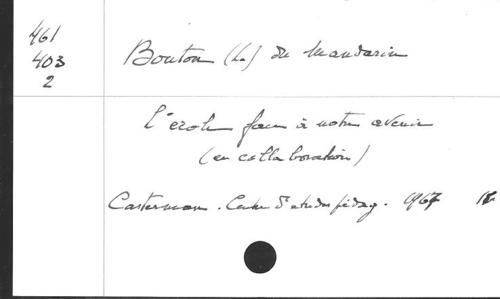 461
403
2
Bouton (Le) du Mandarin
L'école face à notre avenir
(en collaboration)
Casterman. Centre d'études pédag. 1967